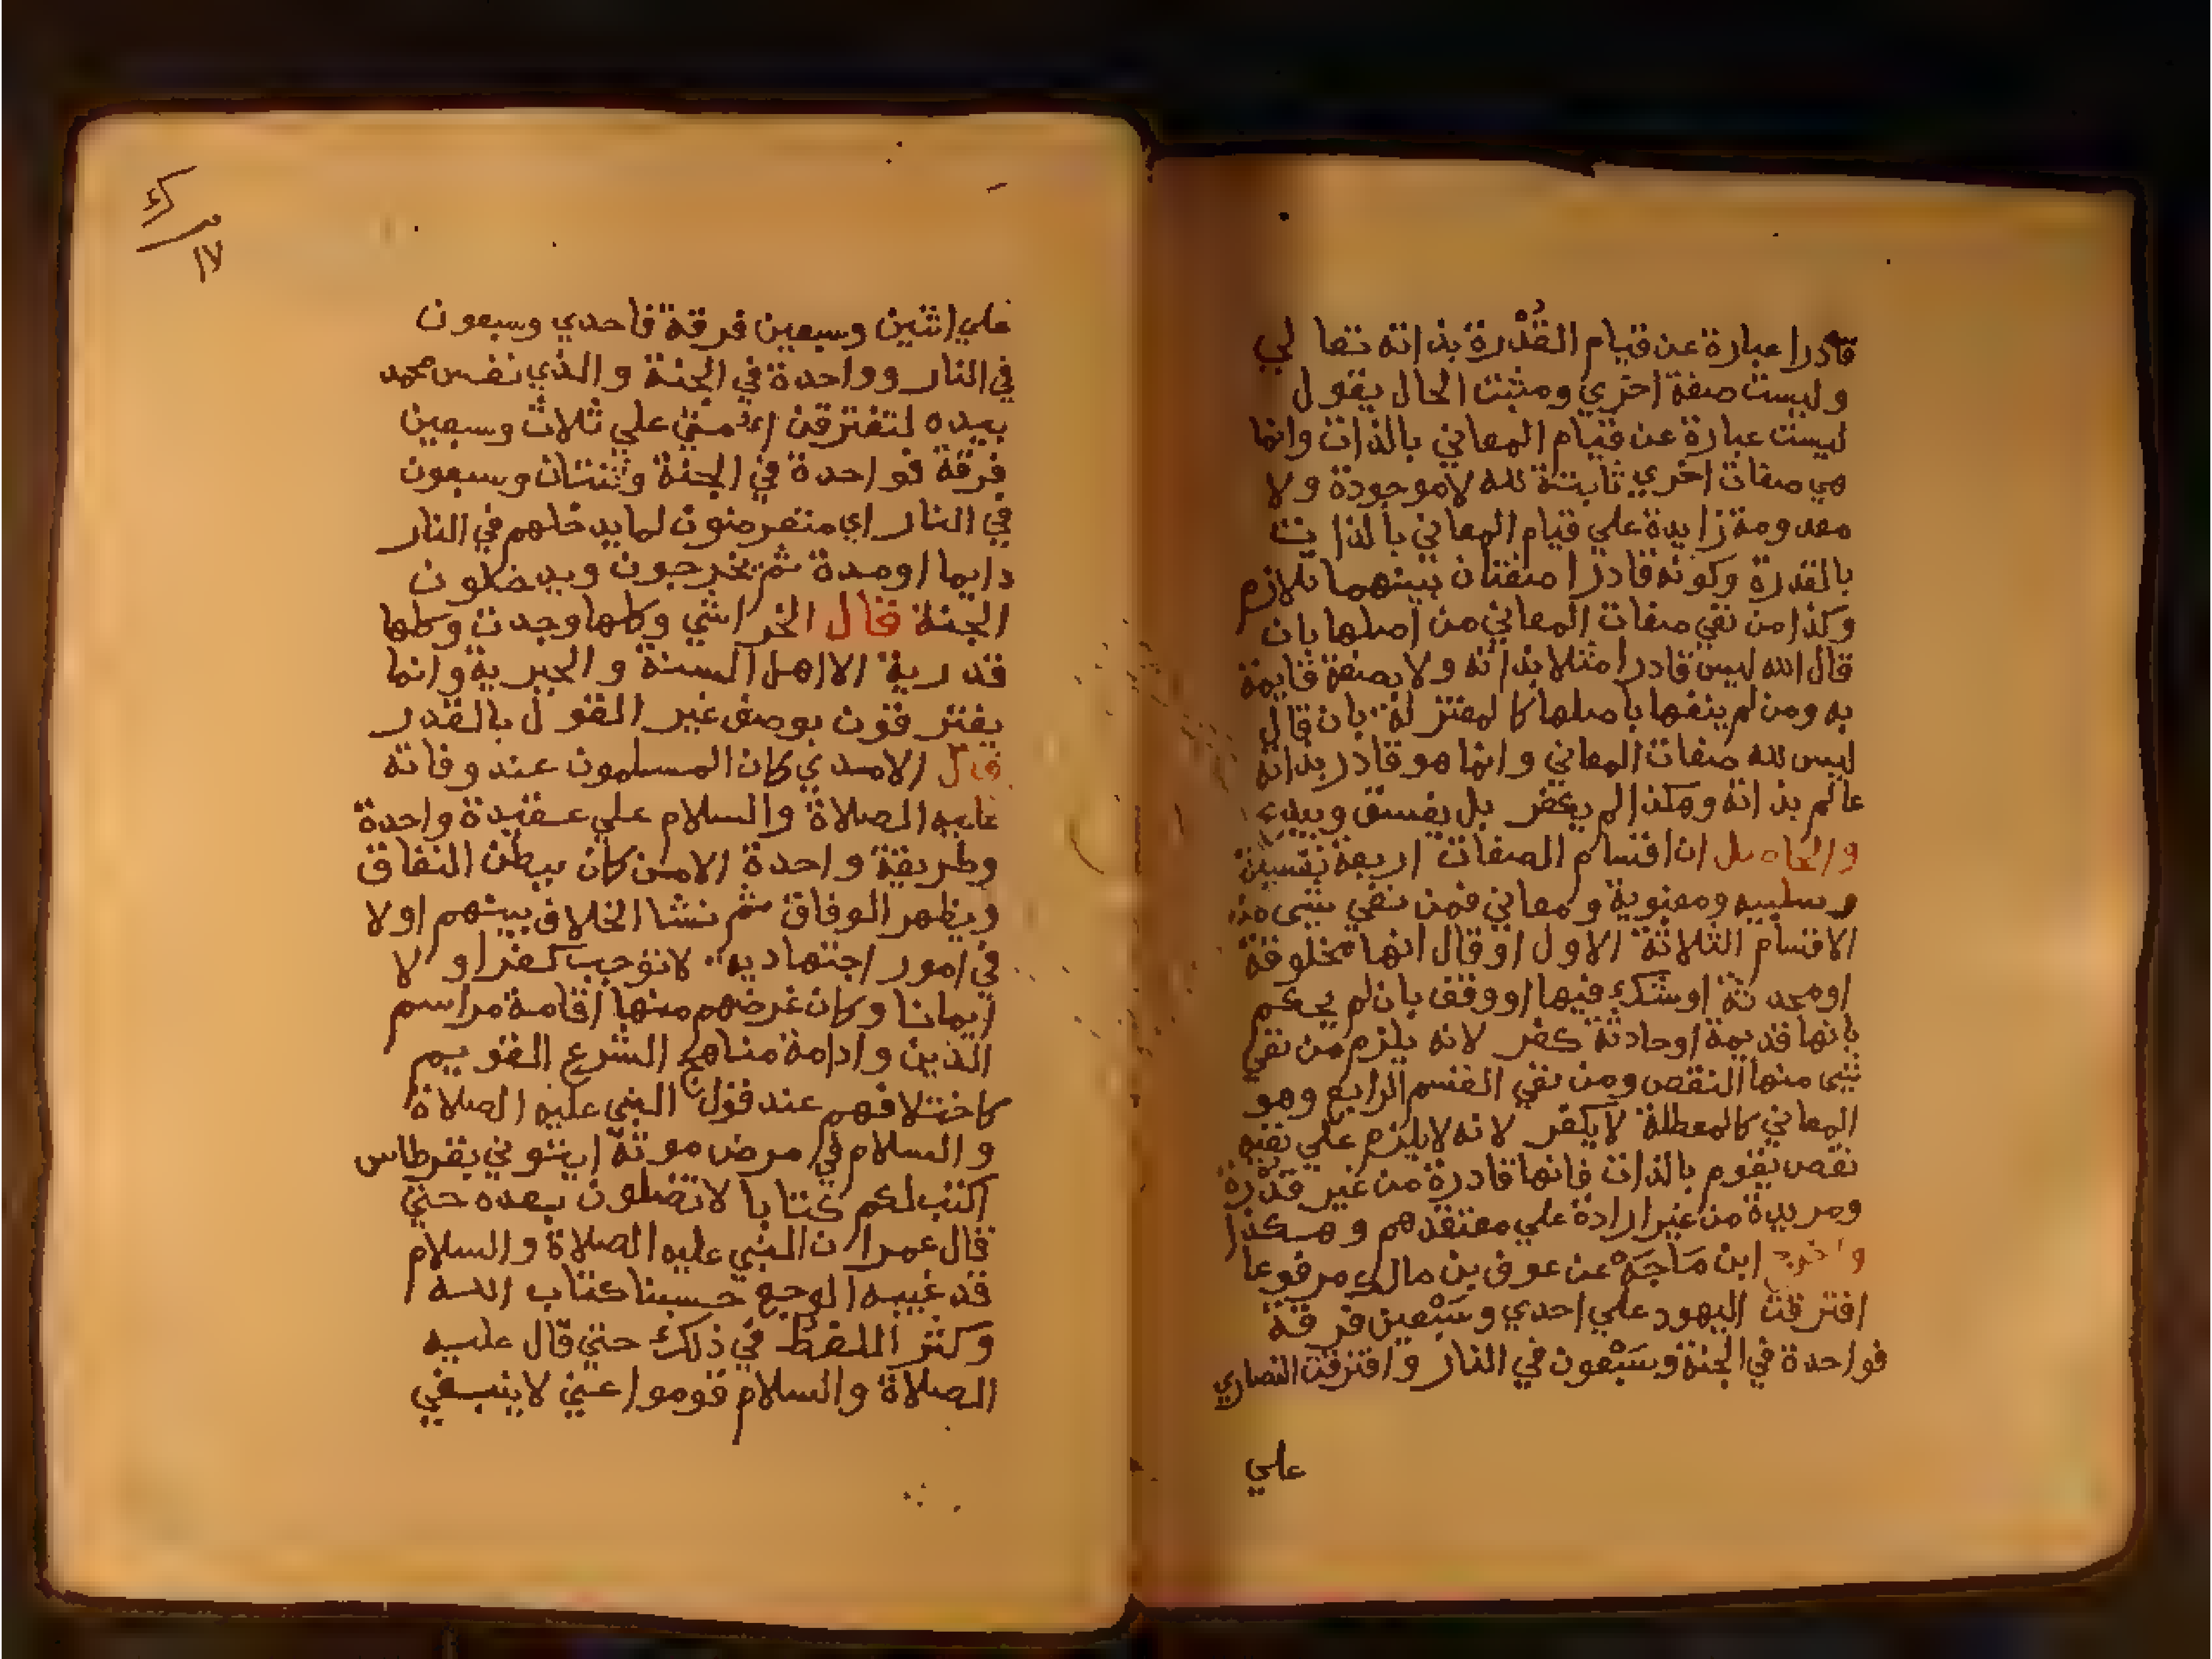 قادرا عبارة عن قيام القُدْرة بذاته تعالي
وليست صفة اخري ومثبت الحال يقول
ليست عبارة عن قيام المعاني بالذات وانما
هي صفات اخري ثابتة لله لا موجودة ولا
معدومة زايدة علي قيام المعاني بالذات
بالقدرة وكونه قادرا صفتان بينهما تلازم
وكذا من نفي صفات المعاني من اصلها بان
قال الله ليس قادرا مثلا بذاته ولا بصفة قايمة
به ومن لم ينفها باصلها كالمعتزلة بان قال
ليس لله صفات المعاني وانما هو قادر بذاته
عالم بذاته وهكذا لم يكفر بل يفسق ويبدع
والحاصل ان اقسام الصفات اربعة نفسية
وسلبيه ومعنوية ومعاني فمن نفي شي من
الاقسام الثلاثة الاول او قال انها مخلوقة
او محدثة او شك فيها او وقف بان لم يحكم
بانها قديمة او حادثة كفر لانه يلزم من نفي
شي منها النقص ومن نفي القسم الرابع وهو
المعاني كالمعطلة لا يكفر لانه لا يلزم علي نفيه
نقص يقوم بالذات فانها قادرة من غير قدرة
ومريدة من غير ارادة علي معتقدهم وهكذا
واخرج ابن مَاجَهْ عن عوف بن مالك مرفوعا
افترقت اليهود علي احدي وسَبْعين فرقة
فواحدة في الجنة وسَبْعون في النار وافترقت النصاري
علي
١٧
علي اثنين وسبعين فرقة فاحدي وسبعون
في النار وواحدة في الجنة والذي نفس محمد
بيده لتفترقن امتي علي ثلاث وسبعين
فرقة فواحدة في الجنة وثنتان وسبعون
في النار اي متعرضون لما يدخلهم في النار
دايما او مدة ثم يخرجون ويدخلون
الجنة قال الخراشي وكلها وجدت وكلها
قدرية الا اهل السنة والجبرية وانما
يفترقون بوصف غير القول بالقدر
قال الامدي كان المسلمون عند وفاته
عليه الصلاة والسلام علي عقيدة واحدة
وطريقة واحدة الا من كان يبطن النفاق
ويظهر الوفاق ثم نشا الخلاف بينهم اولا
في امور اجتهاديه لا توجب كفرا ولا
ايمانا وكان غرضهم منها اقامة مراسم
الدين وادامة مناهج الشرع القويم
كاختلافهم عند قول النبي عليه الصلاة
والسلام في مرض موته ايتوني بقرطاس
اكتب لكم كتابا لا تضلون بعده حتي
قال عمر ان النبي عليه الصلاة والسلام
قد غيبه الوجع حسبنا كتاب الله
وكثر اللغط في ذلك حتي قال عليه
الصلاة والسلام قوموا عني لا ينبغي